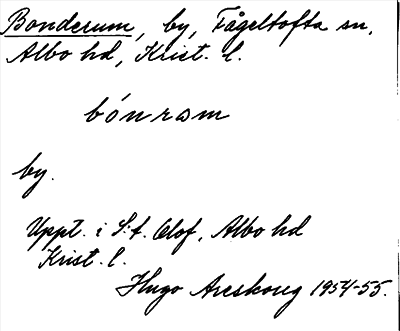 Bonderum, by, Fågeltofta sn,
Albo hd, Krist. l.
bónrəm
by.
Uppt. i S:t. Olof, Albo hd
Krist. l.
Hugo Areskoug 1954-55.